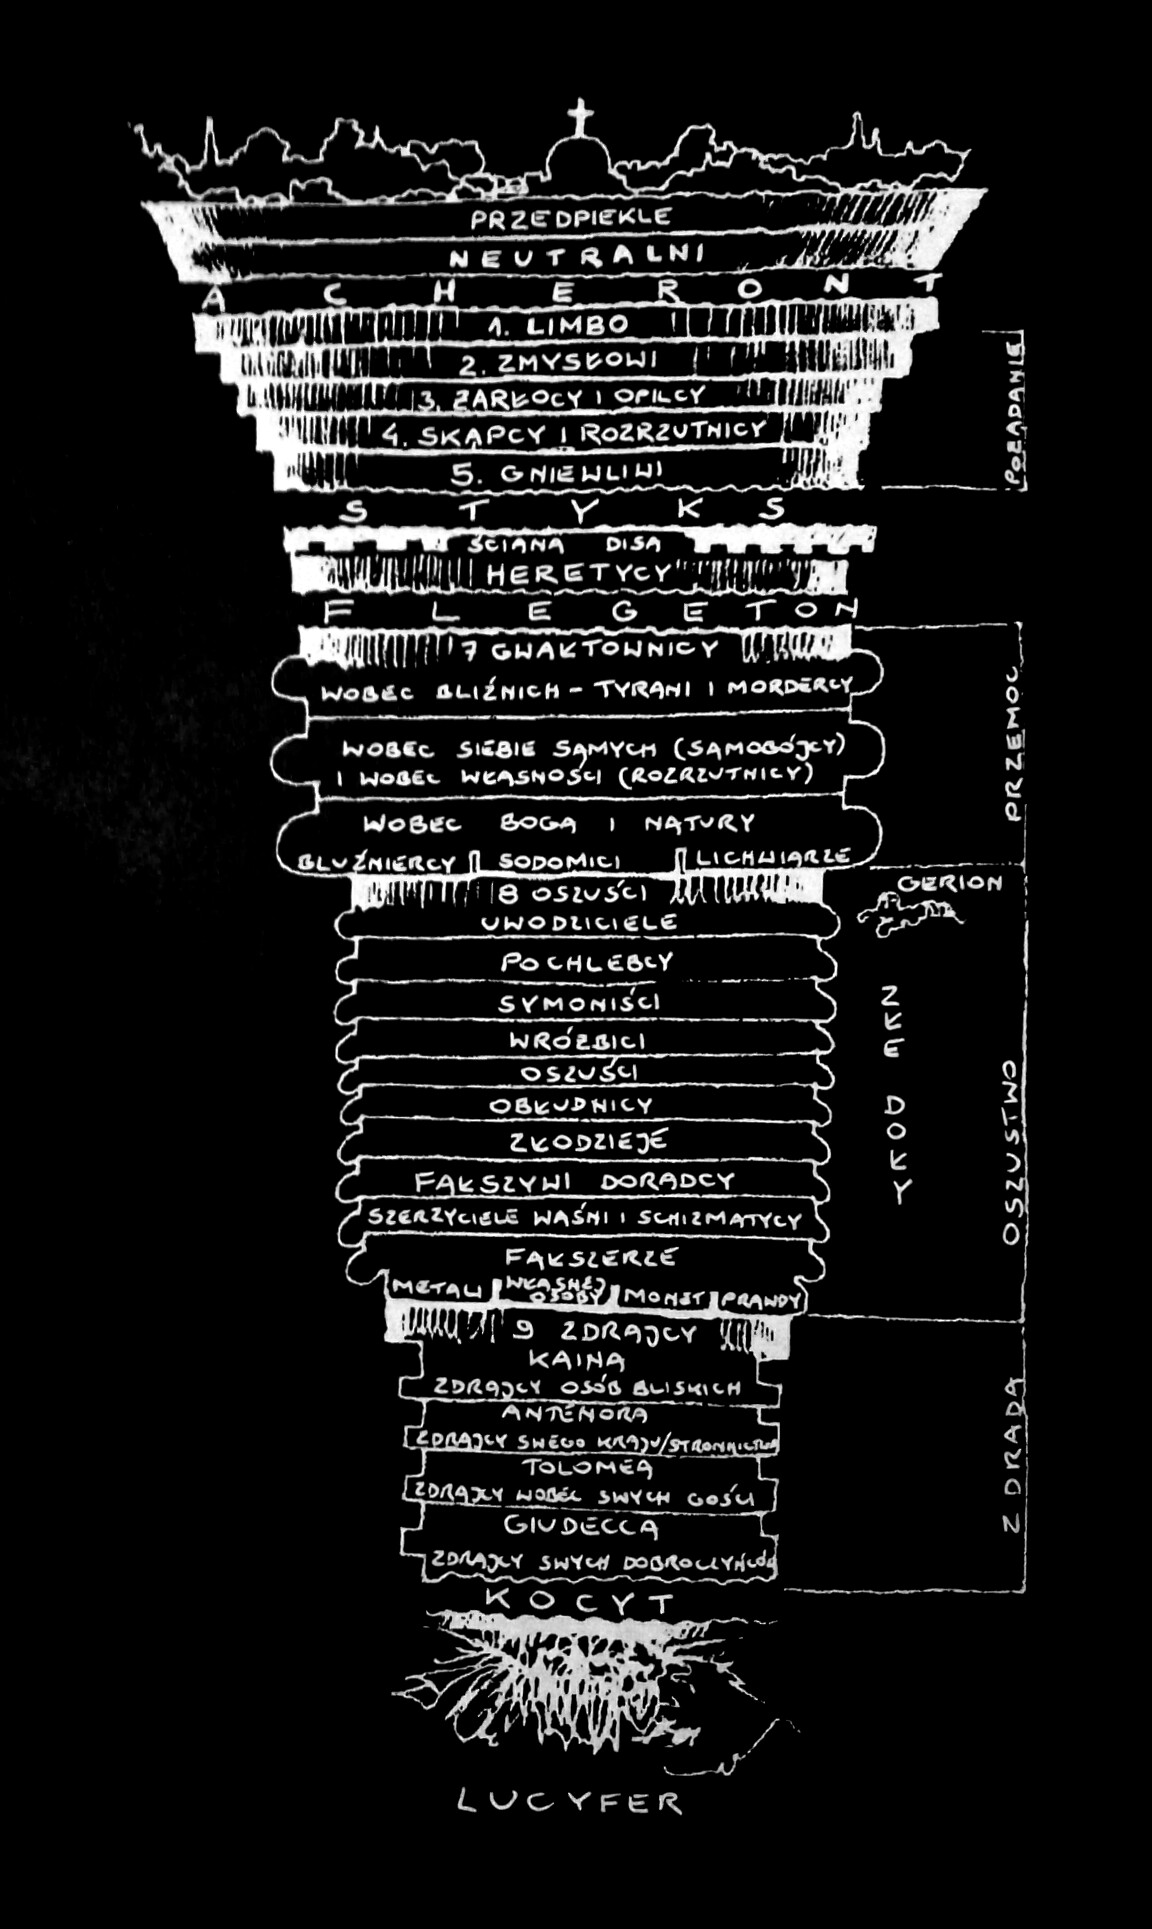 PRZEDPIEKLE
NEUTRALNI
ACHERONT
1. LIMBO
2. ZMYSŁOWI
3. ŻARŁOCY I OPILCY
4. SKĄPCY I ROZRZUTNICY
5. GNIEWLIWI
POŻĄDANIE
STYKS
ŚCIANA DISA
HERETYCY
FLEGETON
7 GWAŁTOWNICY
WOBEC BLIŹNICH - TYRANI I MORDERCY
WOBEC SIEBIE SAMYCH (SAMOBÓJCY)
I WOBEC WŁASNOŚCI (ROZRZUTNICY)
WOBEC BOGA I NATURY
BLUŹNIERCY SODOMICI LICHWIARZE
PRZEMOC
8 OSZUŚCI
GERION
UWODZICIELE
POCHLEBCY
SYMONIŚCI
WRÓŻBICI
OSZUŚCI
OBŁUDNICY
ZŁODZIEJE
FAŁSZYWI DORADCY
SZERZYCIELE WAŚNI I SCHIZMATYCY
FAŁSZERZE
METALI WŁASNEJ OSOBY MONET PRAWDY
ZŁE DOŁY
OSZUSTWO
9 ZDRAJCY
KAINA
ZDRAJCY OSÓB BLISKICH
ANTENORA
ZDRAJCY SWEGO KRAJU/STRONNICTWA
TOLOMEA
ZDRAJCY WOBEC SWYCH GOŚCI
GIUDECCA
ZDRAJCY SWYCH DOBROCZYŃCÓW
ZDRADA
KOCYT
LUCYFER